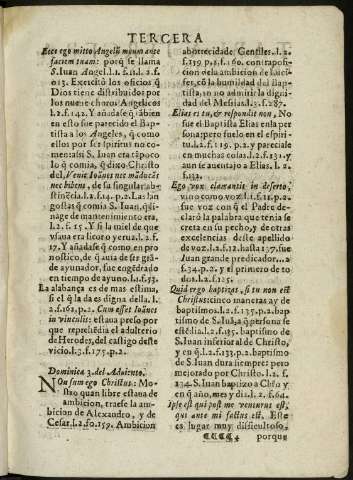 TERCERA
Ecce ego mitto Angelũ meum ante
faciem tuam: porq̃ se llama
S. Iuan Angel. l.1. f.11. l.2. f.
013. Exercitò los oficios q̃
Dios tiene distribuidos por
los nueue choros Angelicos
l.2. f.142. Y añadase q̃ abien
en esto fue parecido el Bap-
tista a los Angeles, q̃ como
ellos por ser spiritus no co-
men assi S. Iuan era tãpoco
lo q̃ comia, q̃ dixo Christo
del, Venit Ioãnes nec mãducãs
nec bibens, de su singular abs-
tinẽcia. l.2. f.14. p.2. Las lan
gostas q̃ comia S. Iuan, q̃ li-
nage de mantenimiento era,
l.2. f. 15. Y si la miel de que
vsaua era licor o yerua. l.2. f.
17. Y añadase q̃ como, en pro
nostico, de q̃ auia de ser grã-
de ayunador, fue engẽdrado
en tiempo de ayuno. l.1. f.53.
La alabança es de mas estima,
si el q̃ la da es digna della. l.1.
f.162. p.2. Cum esset Ioãnes
in vinculis: estaua preso por
que reprehẽdia el adulterio
de Herodes, del castigo deste
vicio. l.3. f.175. p.2.
Dominica 3. del Aduiento.
Non sum ego Christus: Mo-
stro quan libre estaua de
ambicion, traese la am-
bicion de Alexandro, y de
Cesar. l.2. fo.159. Ambicion
aborrecida de Gentiles. l.2.
f.139. p.2. f.160. contraposi-
cion de la ambicion de Luci-
fer, cõ la humildad del Bap-
tista, en no admitir la digni-
dad del Mesias. l.2. f.287.
Elias es tu, & respondit non, No
fue el Baptista Elias en la per
sona; pero fuelo en el espiri-
tu. l.2. f.119. p.2. y parecele
en muchas cosas. l.2. f.131. y
aun se auentajo a Elias. l.2.
f.132.
Ego vox clamantis in deserto,
vino como voz. l.1. f.11. p.2.
fue voz con q̃ el Padre de-
claró la palabra que tenia se
creta en su pecho, y de otras
excelencias deste apellido
de voz. l.2. f.12. hasta 137. fue
Iuan grande predicador... a
f.34. p.2. y el primero de to
dos. l.2. f.125.
Quid ergo baptizas, si tu non est
Christus: cinco maneras ay de
baptismos. l.2. f.135. p.2. bap-
tismo de S. Iuã, a q̃ persona se
estẽdia. l.2. f.85. baptismo de
S. Iuan inferior al de Christo,
y en q̃. l.2. f.133. p.2. baptismo
de S. Iuan dura siempre: pero
mejorado por Christo. l.2. f.
234. S. Iuan baptizo a Chro y
en q̃ año, mes y dia. l.2. f.64.
Ipse est qui post me venturus est,
qui ante mi factus est, Este
es lugar muy dificultoso,
CCCC4 porque